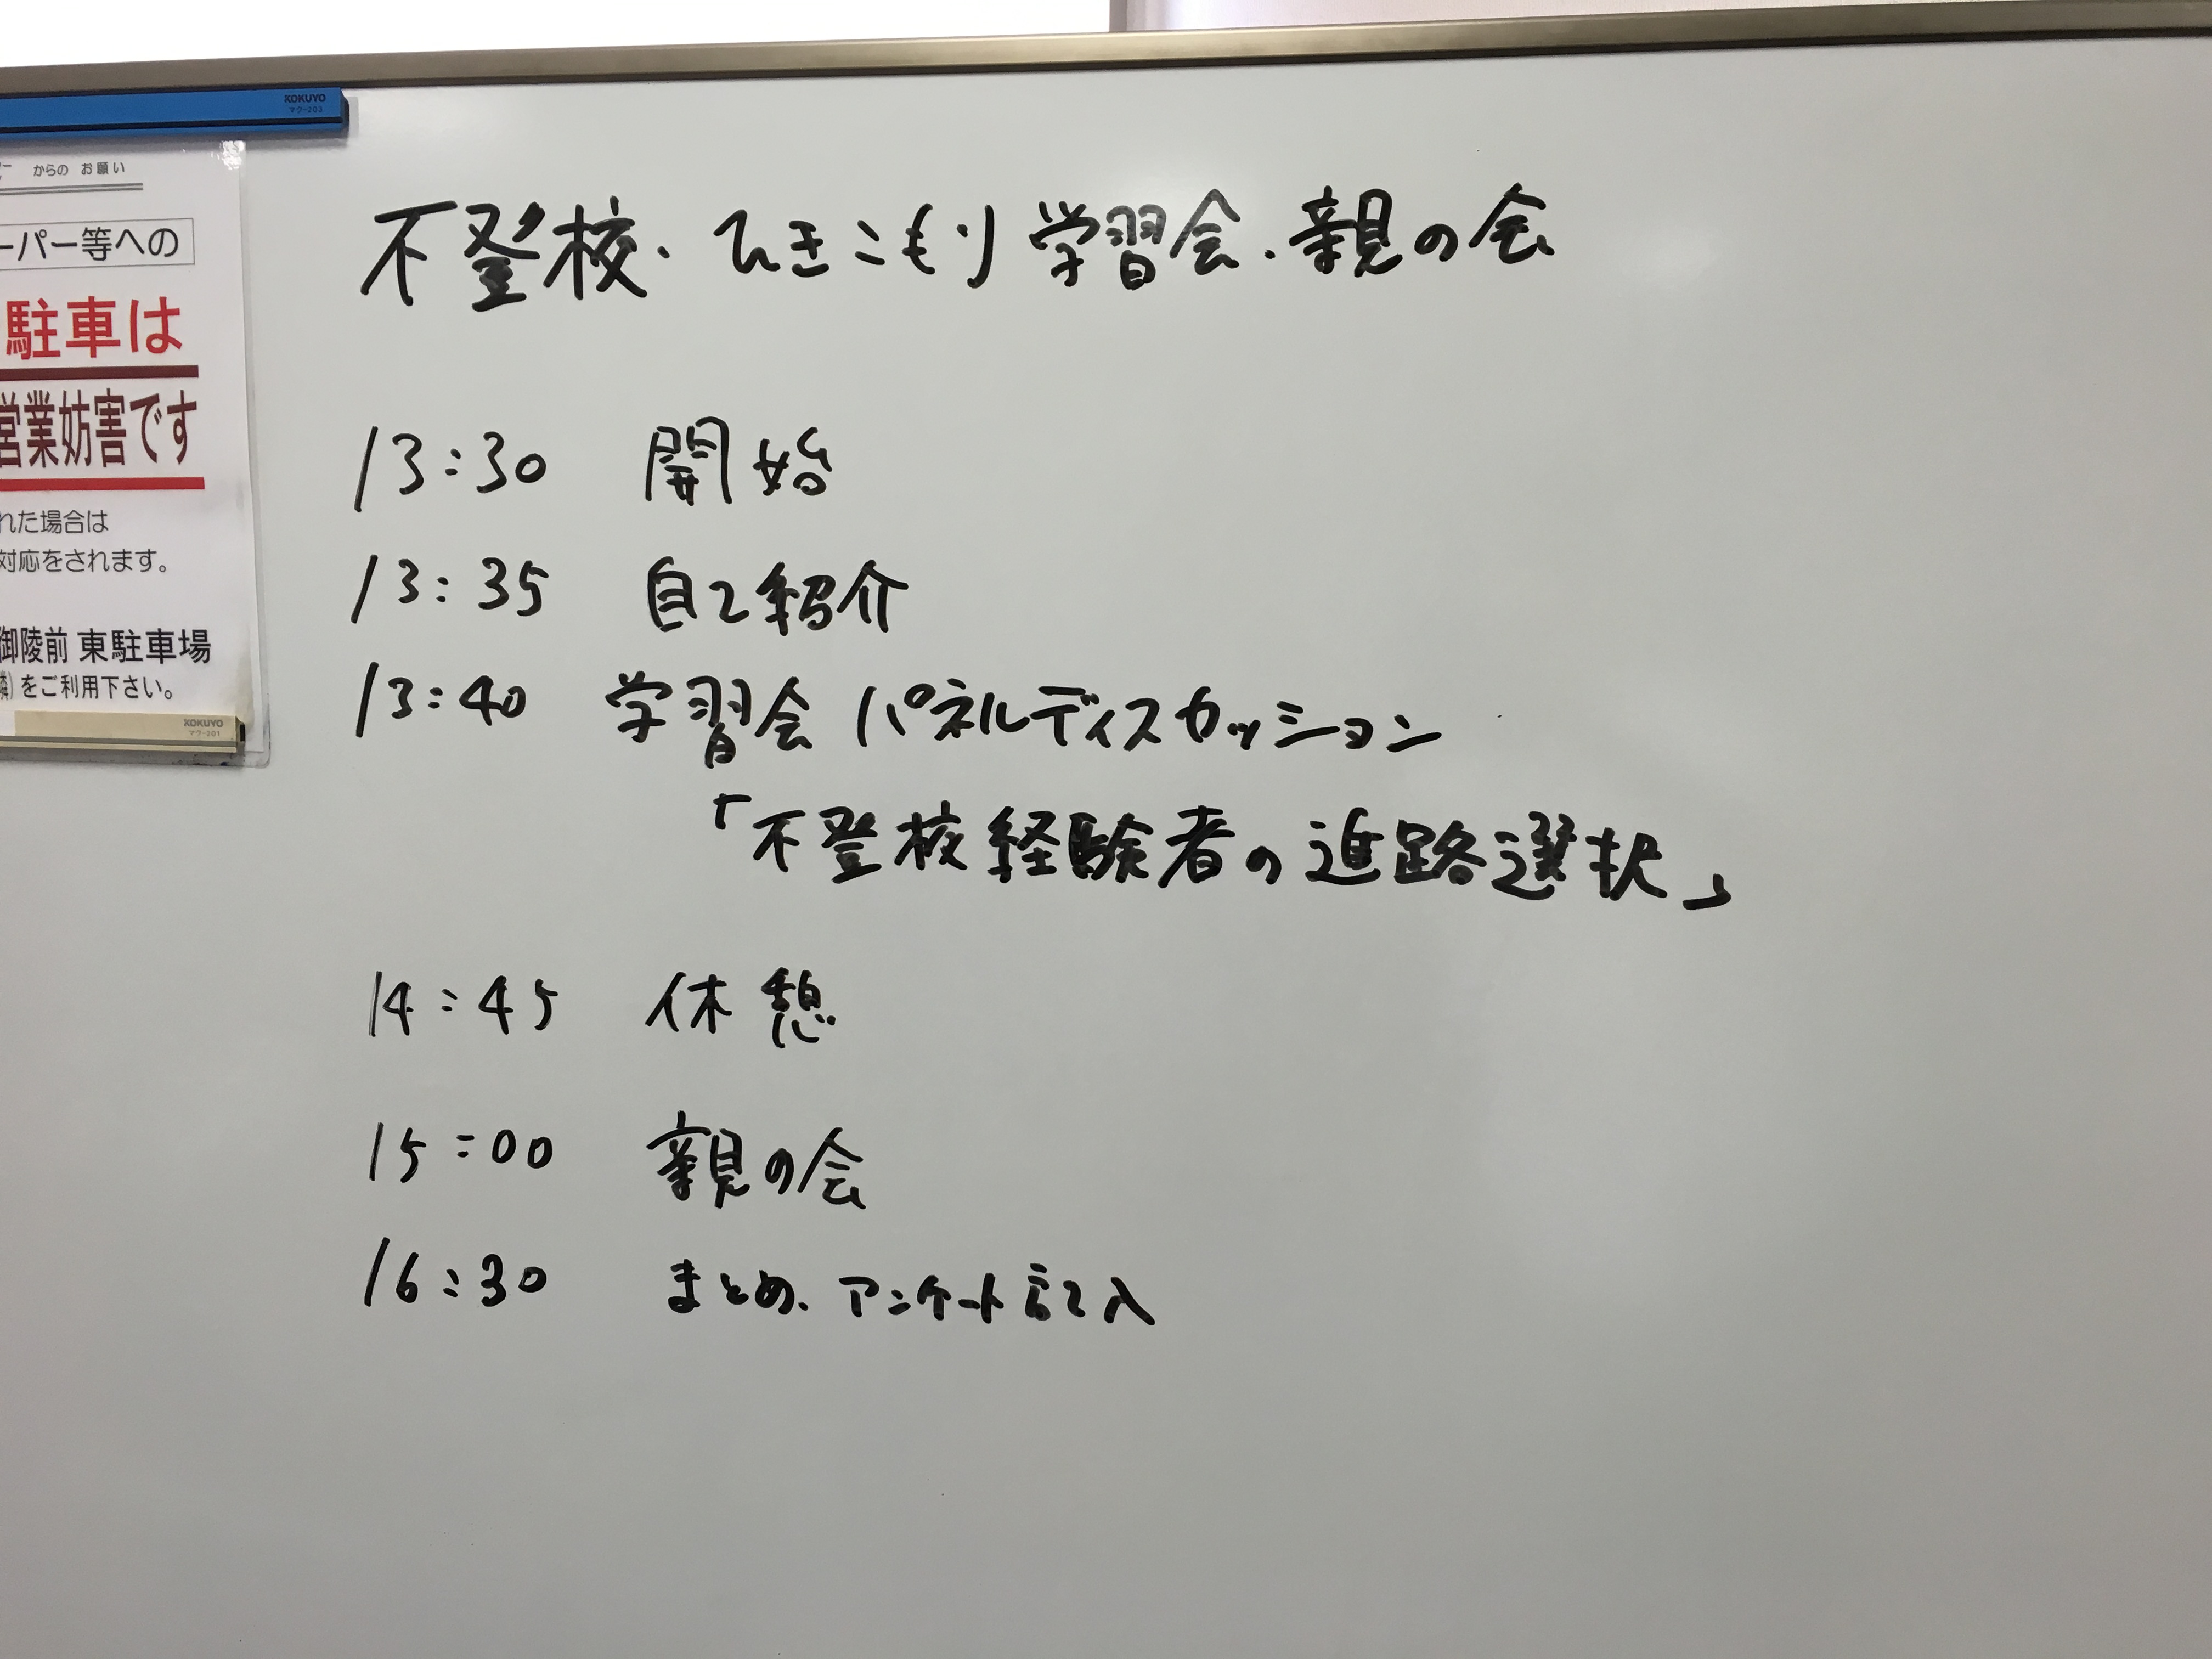 KOKUYO
マク-203
からのお願い
ーパー等への
駐車は
営業妨害です
れた場合は
対応をされます。
御陵前 東駐車場
をご利用下さい。
KOKUYO
マク-201
不登校・ひきこもり学習会・親の会
13:30 開始
13:35 自己紹介
13:40 学習会 パネルディスカッション
「不登校経験者の進路選択」
14:45 休憩
15:00 親の会
16:30 まとめ、アンケート記入